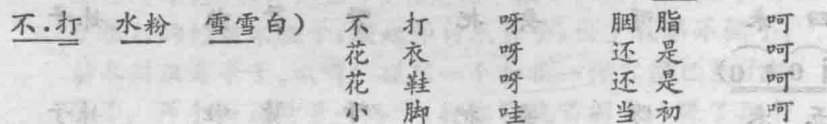 不.打 水粉 雪雪白） 不 打 呀 胭 脂 呵
花 衣 呀 还 是 呵
花 鞋 呀 还 是 呵
小 脚 哇 当 初 呵